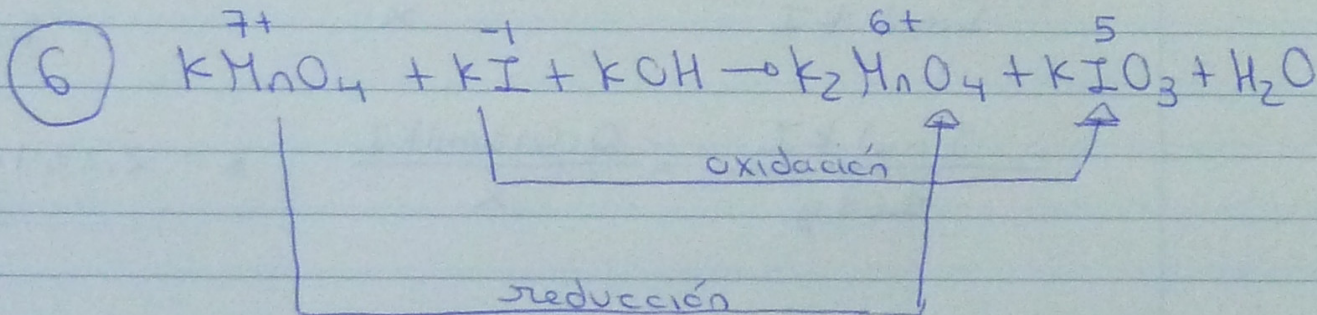 7+ -1 6+ 5
6 KMnO4 + KI + KOH → K2MnO4 + KIO3 + H2O
oxidación
reducción